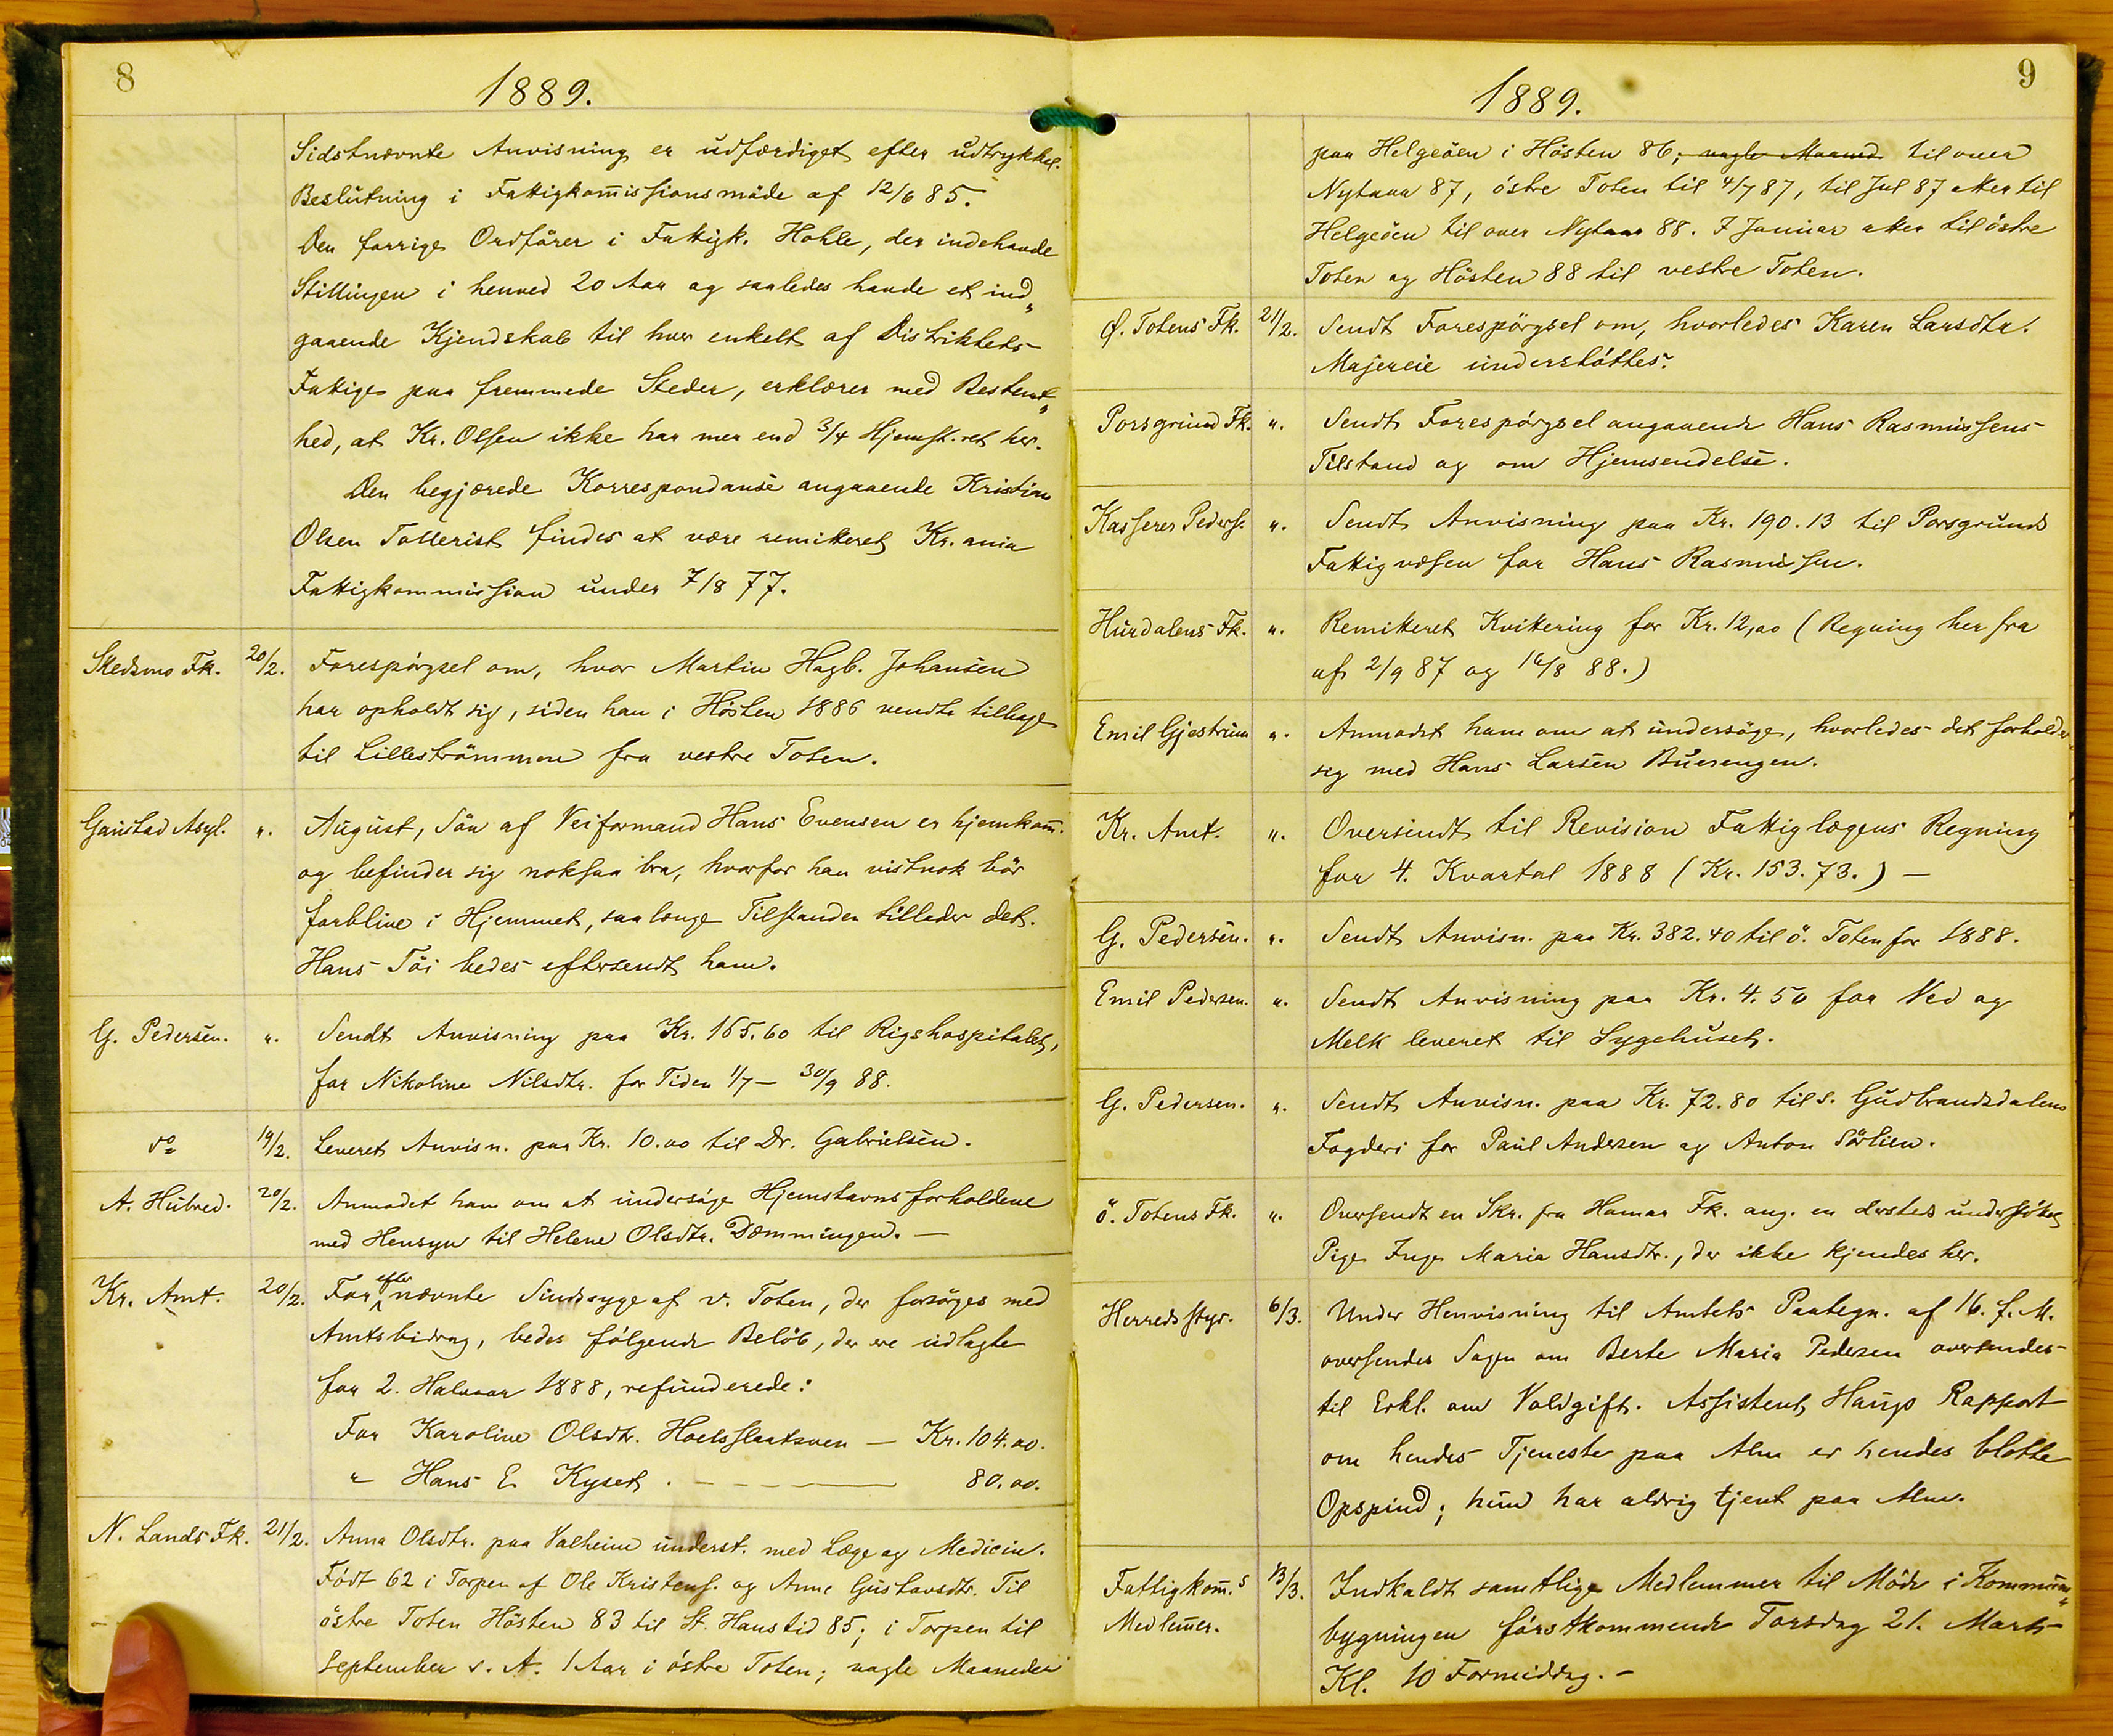 8
1889.
Sidstnævnte Anvisning er udfærdiget efter udtrykkel.
Beslutning i Fattigkommissionsmöde af 12/6 85.
Den forrige Ordförer i Fattigk. Hohle, der indehavde
Stillingen i henved 20 Aar og saaledes havde et ind„
gaaende Kjendskab til hver enkelt af Distriktets
Fattige paa fremmede Steder, erklærer med Bestemt„
hed, at Kr. Olsen ikke har mer end 3/4 Hjemst. ret her.
Den begjærede Korrespondanse angaaende Kristian
Olsen Tollerist findes at være remitteret Kr.ania
Fattigkommission under 7/8 77.
Skedsmo Fk. 20/2. Forespörgsel om, hvor Martin Hagb. Johansen
har opholdt sig, siden han i Hösten 1886 vendte tilbage
til Lilleströmmen fra vestre Toten.
Gaustad Asyl. ". August, Sön af Veiformand Hans Evensen er hjemkom.
og befinder sig noksaa bra, hvorfor han vistnok bör
forblive i Hjemmet, saalænge Tilstanden tillader det.
Hans Töi bedes eftersendt ham.
G. Pedersen. ". Sendt Anvisning paa Kr. 165.60 til Rigshospitalet,
for Nikoline Nilsdtr. for Tiden 1/7 – 30/9 88.
do 19/2. Leveret Anvisn. paa Kr. 10.00 til Dr. Gabrielsen.
A. Hubred. 20/2. Anmodet ham om at undersöge Hjemstavnsforholdene
med Hensyn til Helene Olsdtr. Dæmningen. –
Kr. Amt. 20/2. For efternævnte Sindssyge af v. Toten, der forsörges med
Amtsbidrag, bedes fölgende Belöb, der ere udlagte
for 2. Halvaar 1888, refunderede:
For Karoline Olsdtr. Hoelsslaatsveen – Kr. 104.00.
" Hans E. Kyset. – – – – 80.00.
N. Lands Fk. 21/2. Anna Olsdtr. paa Valheim underst. med Læge og Medicin.
Født 62 i Torpen af Ole Kristens. og Anne Gustavsdtr. Til
östre Toten Hösten 83 til St. Hanstid 85; i Torpen til
September s. A. 1 Aar i östre Toten; nogle Maaneder
9
1889.
paa Helgeöen i Hösten 86; nogle Maaned til over
Nytaar 87, östre Toten til 4/7 87, til Jul 87 atter til
Helgeöen til over Nytaar 88. I Januar atter til östre
Toten og Hösten 88 til vestre Toten.
Ø. Totens Fk. 21/2. Sendt Forespörgsel om, hvorledes Karen Larsdtr.
Majereie understöttes.
Porsgrund Fk. ". Sendt Forespörgsel angaaende Hans Rasmussens
Tilstand og om Hjemsendelse.
Kasserer Peders. ". Sendt Anvisning paa Kr. 190.13 til Porsgrunds
Fattigvæsen for Hans Rasmussen.
Hurdalens Fk. ". Remitteret Kvittering for Kr. 12,00 (Regning her fra
af 2/9 87 og 16/8 88.)
Emil Gjestrum ". Anmodet ham om at undersöge, hvorledes det forholder
sig med Hans Larsen Buerengen.
Kr. Amt. ". Oversendt til Revision Fattiglægens Regning
for 4. Kvartal 1888 (Kr. 153.73.) –
G. Pedersen. ". Sendt Anvisn. paa Kr. 382.40 til ö. Toten for 1888.
Emil Pedersen. ". Sendt Anvisning paa Kr. 4.50 for Ved og
Melk leveret til Sygehuset.
G. Pedersen. ". Sendt Anvisn. paa Kr. 72.80 til s. Gudbrandsdalens
Fogderi for Paul Andersen og Anton Sörlien.
ö. Totens Fk. ". Oversendt en Skr. fra Hamar Fk. ang. en dersteds understöttet
Pige Inge Maria Hansdtr., der ikke kjendes her.
Herredsstyr. 6/3. Under Henvisning til Amtets Paategn. af 16. f. M.
oversendes Sagen om Berte Maria Pedersen oversendes
til Erkl. om Voldgift. Assistent Haugs Rapport
om hendes Tjeneste paa Alm er hendes blotte
Opspind; hun har aldrig tjent paa Alm.
Fattigkom.s 13/3. Indkaldt samtlige Medlemmer til Möde i Kommune„
Medlemer. bygningen förstkommende Torsdag 21. Marts
Kl. 10 Formiddag. –